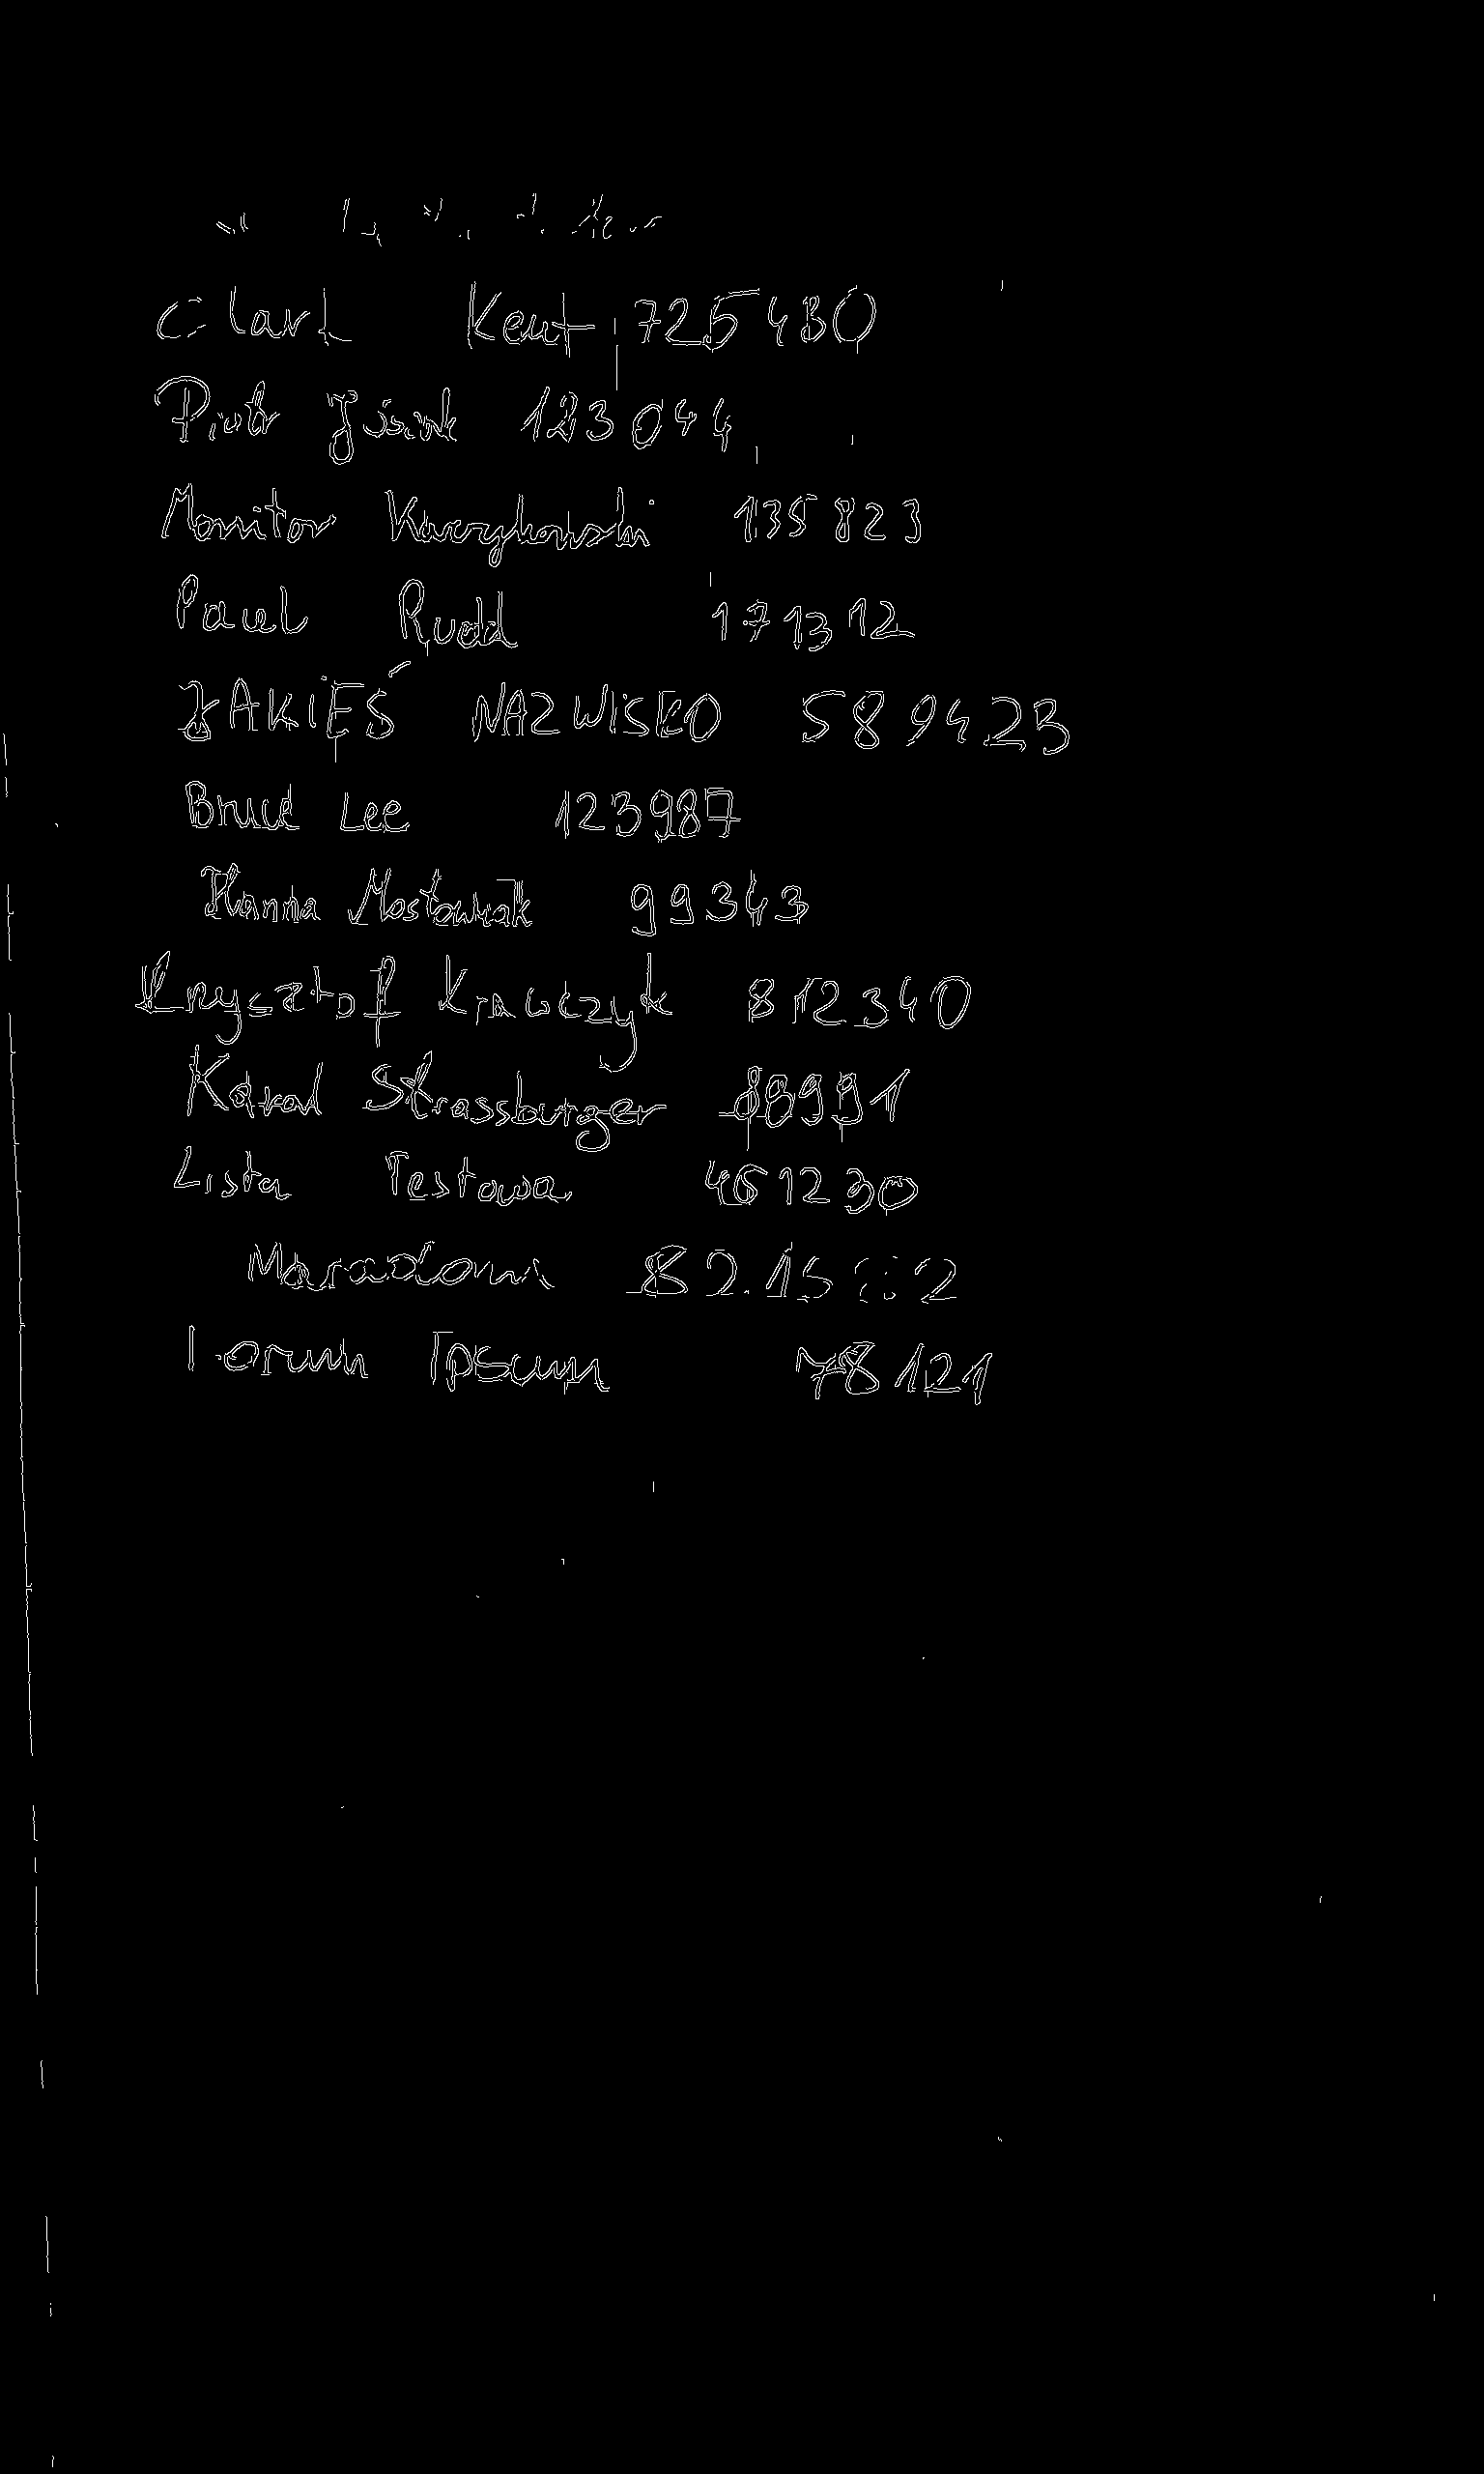 Clark Kent 725430
Piotr Jósiak 123044
Monitor Kwarykowski 135823
Paul Rudd 171312
JAKIEŚ NAZWISKO 589423
Bruce Lee 123987
Hanna Mostowiak 99343
Krzysztof Krawczyk 812340
Karol Strassburger 98991
Lista Testowa 461230
Maradona
Lorum Ipsum 78121